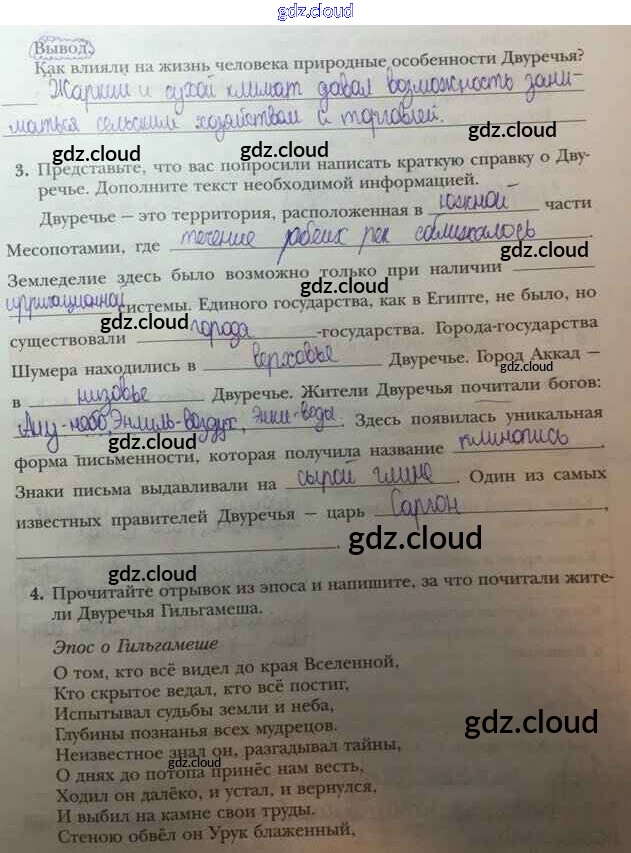 gdz.cloud
Вывод.
Как влияли на жизнь человека природные особенности Двуречья?
Жаркий и сухой климат давал возможность зани-
маться сельским хозяйством и торговлей.
gdz.cloud
gdz.cloud
3. Представьте, что вас попросили написать краткую справку о Дву-
речье. Дополните текст необходимой информацией.
gdz.cloud
Двуречье — это территория, расположенная в южной части
Месопотамии, где течение обеих рек сближалось.
gdz.cloud
Земледелие здесь было возможно только при наличии
gdz.cloud
ирригационной системы. Единого государства, как в Египте, не было, но
gdz.cloud
существовали города-государства. Города-государства
Шумера находились в верховье Двуречье. Город Аккад —
gdz.cloud
в низовье Двуречье. Жители Двуречья почитали богов:
Ану-небо, Энлиль-воздух, Энки-воды. Здесь появилась уникальная
gdz.cloud
форма письменности, которая получила название клинопись.
Знаки письма выдавливали на сырой глине. Один из самых
gdz.cloud
известных правителей Двуречья — царь Саргон,
gdz.cloud
gdz.cloud
4. Прочитайте отрывок из эпоса и напишите, за что почитали жите-
ли Двуречья Гильгамеша.
Эпос о Гильгамеше
О том, кто всё видел до края Вселенной,
Кто скрытое ведал, кто всё постиг,
Испытывал судьбы земли и неба,
Глубины познанья всех мудрецов.
gdz.cloud
Неизвестное знал он, разгадывал тайны,
О днях до потопа принёс нам весть,
gdz.cloud
Ходил он далёко, и устал, и вернулся,
И выбил на камне свои труды.
Стеною обвёл он Урук блаженный,